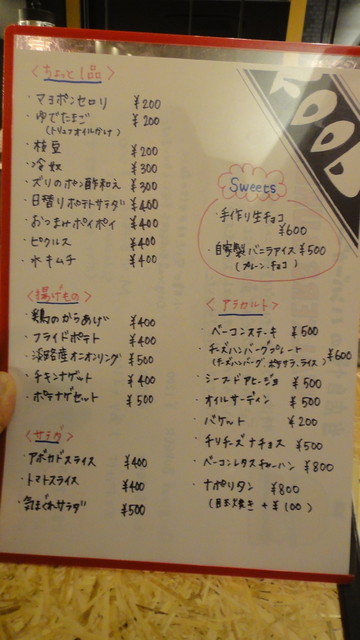 FOOD
<ちょっと1品>
・マヨポンセロリ ¥200
・ゆでたまご ¥200
(トリュフオイルがけ)
・枝豆 ¥200
・冷奴 ¥300
・ズリのポン酢和え ¥300
・日替りポテトサラダ ¥400
・おつまみポイポイ ¥400
・ピクルス ¥400
・水キムチ ¥400
<揚げもの>
・鶏のからあげ ¥400
・フライドポテト ¥400
・淡路産オニオンリング ¥500
・チキンナゲット ¥400
・ポテナゲセット ¥500
<サラダ>
・アボカドスライス ¥400
・トマトスライス ¥400
・気まぐれサラダ ¥500
Sweets
・手作り生チョコ
¥600
・自家製バニラアイス ¥500
(プレーン、チョコ)
<アラカルト>
・ベーコンステーキ ¥500
・チーズハンバーグプレート ¥600
(チーズハンバーグ、ポテサラ、ライス)
・シーフードアヒージョ ¥500
・オイルサーディン ¥500
・バケット ¥200
・チリチーズナチョス ¥500
・ベーコンレタスチャーハン ¥800
・ナポリタン ¥800
(目玉焼き +¥100)